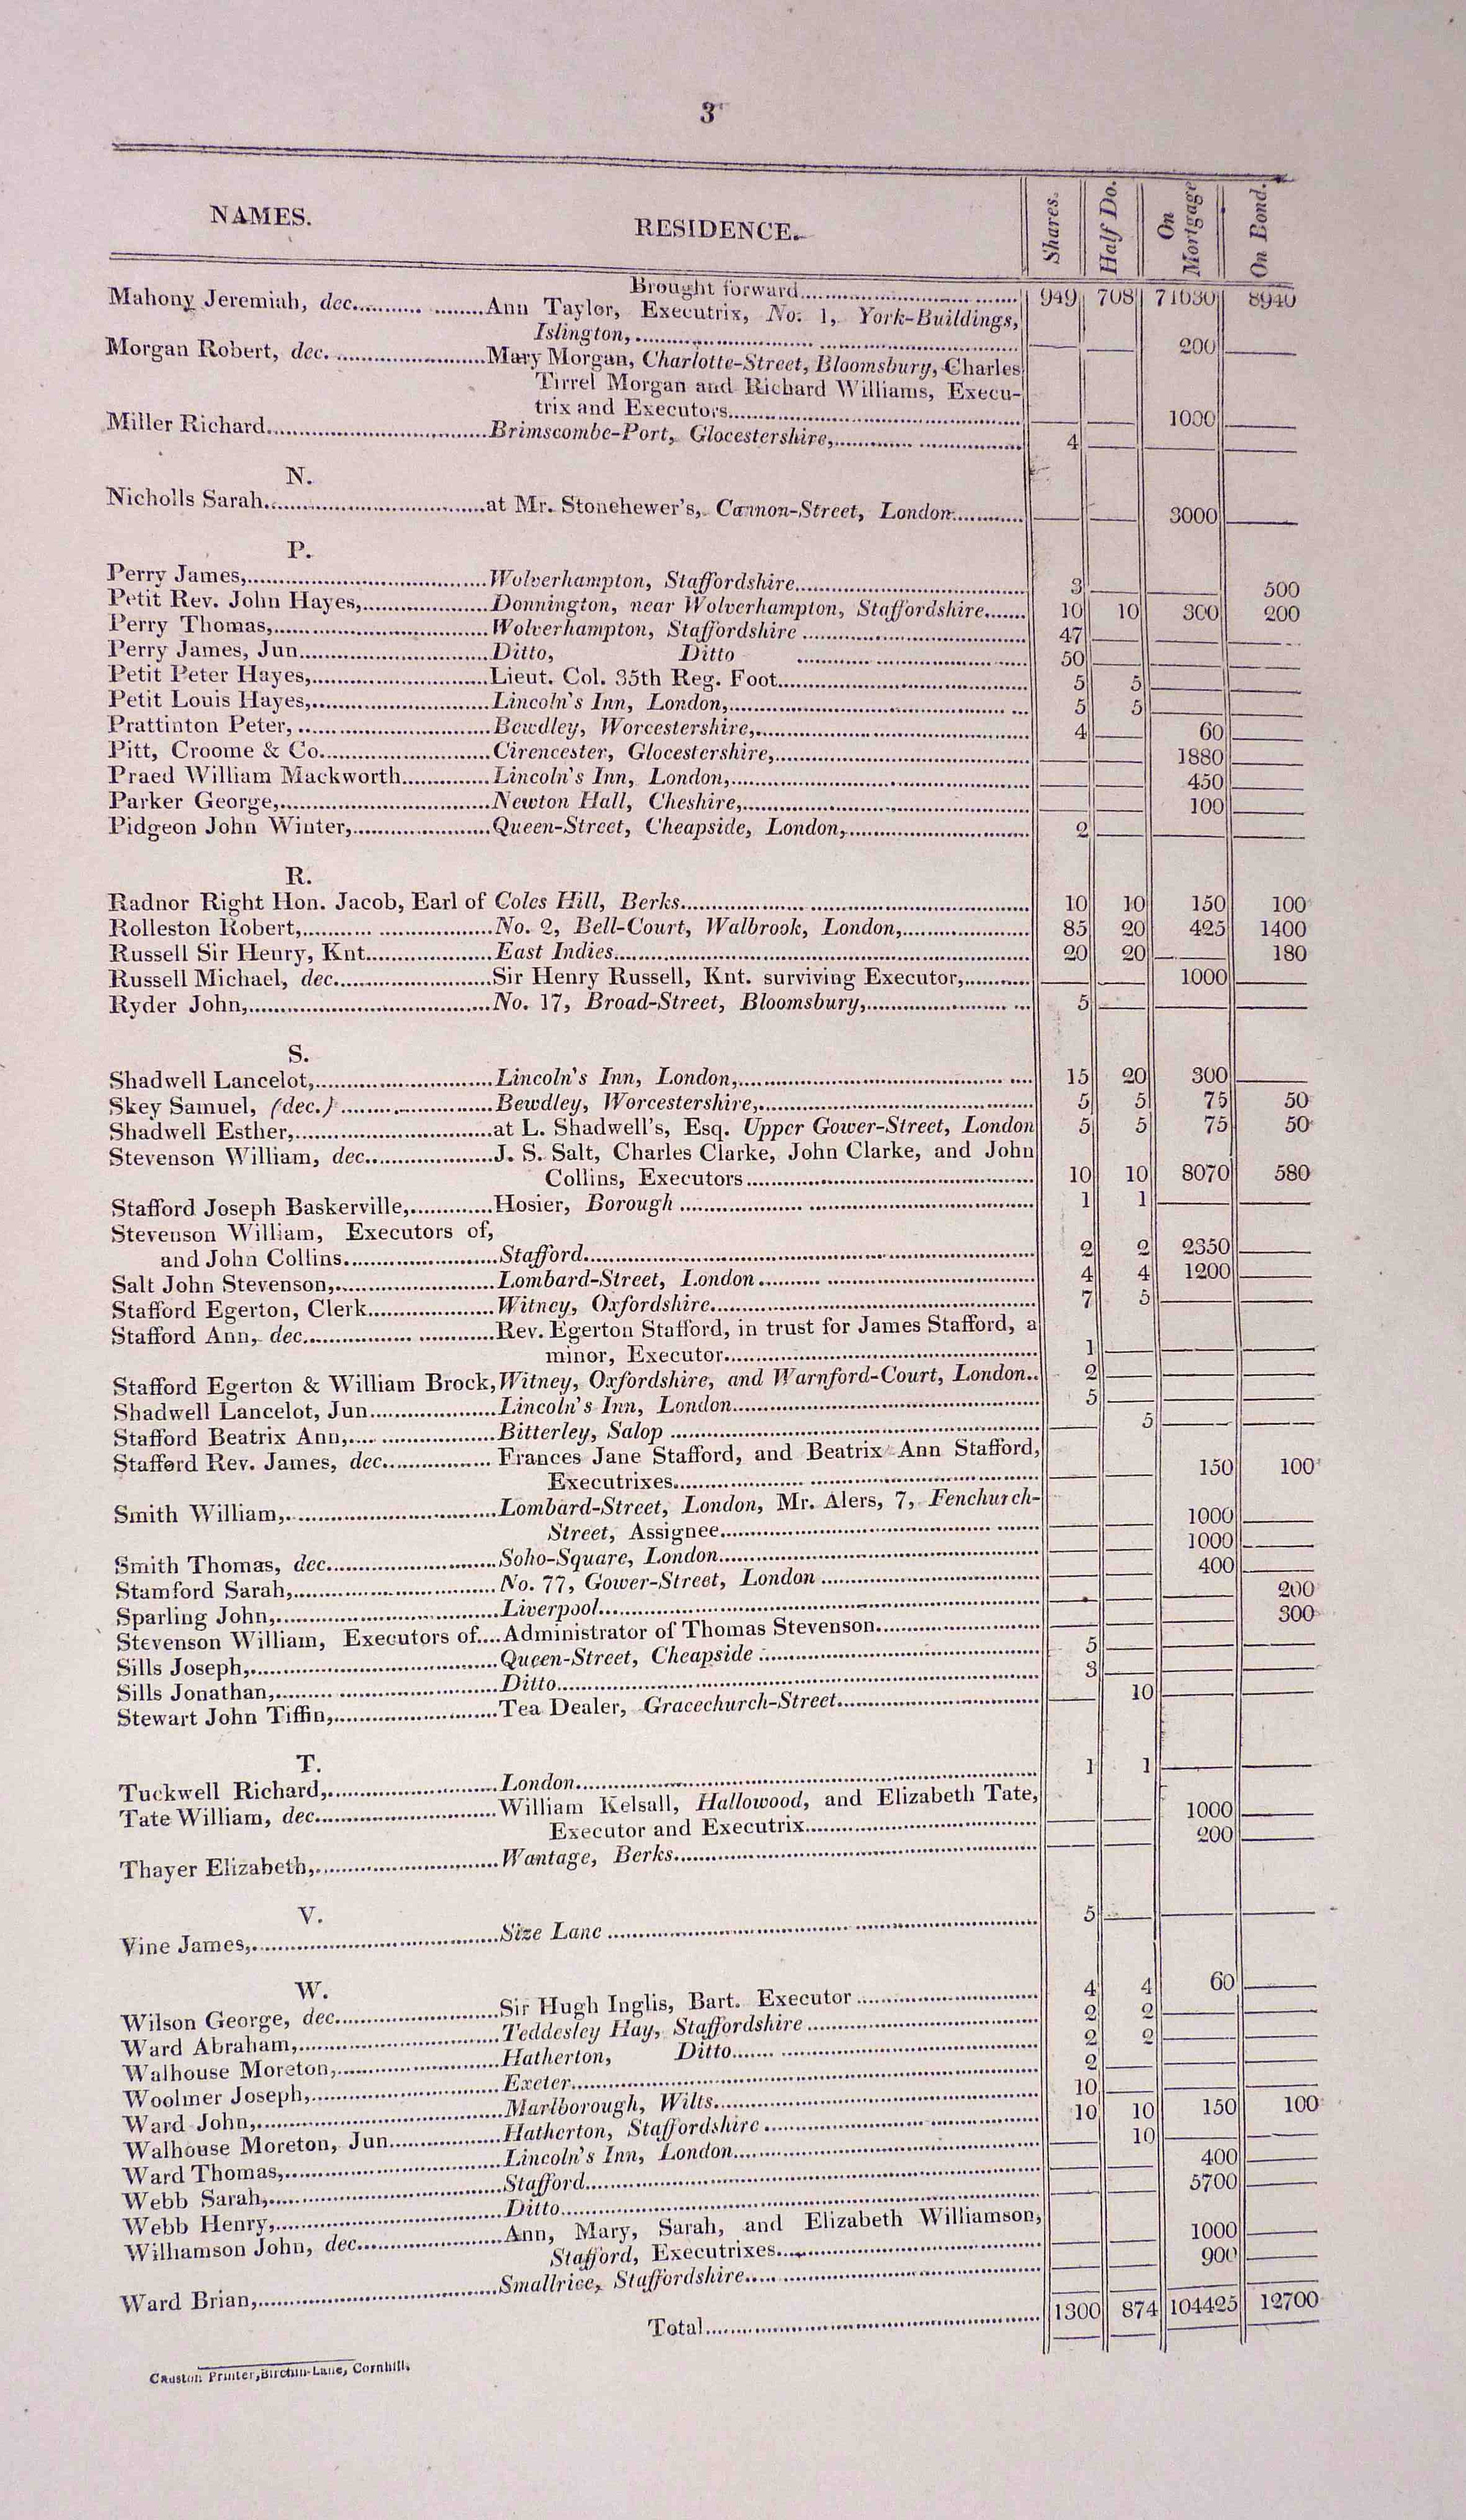 3
NAMES. RESIDENCE. Shares. Half Do. On Mortgage On Bond.
Brought forward 949 708 71630 8940
Mahony Jeremiah, dec. Ann Taylor, Executrix, No. 1, York-Buildings,
Islington, — — 200 —
Morgan Robert, dec. Mary Morgan, Charlotte-Street, Bloomsbury, Charles
Tirrel Morgan and Richard Williams, Execu-
trix and Executors — — 1000 —
Miller Richard Brimscombe-Port, Glocestershire, 4 — — —
N.
Nicholls Sarah at Mr. Stonehewer's, Cannon-Street, London — — 3000 —
P.
Perry James, Wolverhampton, Staffordshire 3 — — 500
Petit Rev. John Hayes, Donnington, near Wolverhampton, Staffordshire 10 10 300 200
Perry Thomas, Wolverhampton, Staffordshire 47 — — —
Perry James, Jun. Ditto, Ditto 50 — — —
Petit Peter Hayes, Lieut. Col. 35th Reg. Foot 5 5 — —
Petit Louis Hayes, Lincoln's Inn, London, 5 5 — —
Prattinton Peter, Bewdley, Worcestershire, 4 — 60 —
Pitt, Croome & Co. Cirencester, Glocestershire, — — 1880 —
Praed William Mackworth Lincoln's Inn, London, — — 450 —
Parker George, Newton Hall, Cheshire, — — 100 —
Pidgeon John Winter, Queen-Street, Cheapside, London, 2 — — —
R.
Radnor Right Hon. Jacob, Earl of Coles Hill, Berks 10 10 150 100
Rolleston Robert, No. 2, Bell-Court, Walbrook, London, 85 20 425 1400
Russell Sir Henry, Knt. East Indies 20 20 — 180
Russell Michael, dec. Sir Henry Russell, Knt. surviving Executor, — — 1000 —
Ryder John, No. 17, Broad-Street, Bloomsbury, 5 — — —
S.
Shadwell Lancelot, Lincoln's Inn, London, 15 20 300 —
Skey Samuel, (dec.) Bewdley, Worcestershire, 5 5 75 50
Shadwell Esther, at L. Shadwell's, Esq. Upper Gower-Street, London 5 5 75 50
Stevenson William, dec. J. S. Salt, Charles Clarke, John Clarke, and John
Collins, Executors 10 10 8070 580
Stafford Joseph Baskerville, Hosier, Borough 1 1 — —
Stevenson William, Executors of,
and John Collins Stafford 2 2 2350 —
Salt John Stevenson, Lombard-Street, London 4 4 1200 —
Stafford Egerton, Clerk Witney, Oxfordshire 7 5 — —
Stafford Ann, dec. Rev. Egerton Stafford, in trust for James Stafford, a
minor, Executor 1 — — —
Stafford Egerton & William Brock, Witney, Oxfordshire, and Warnford-Court, London 2 — — —
Shadwell Lancelot, Jun. Lincoln's Inn, London 5 — — —
Stafford Beatrix Ann, Bitterley, Salop — 5 — —
Stafford Rev. James, dec. Frances Jane Stafford, and Beatrix Ann Stafford,
Executrixes — — 150 100
Smith William, Lombard-Street, London, Mr. Alers, 7, Fenchurch-
Street, Assignee — — 1000 —
Smith Thomas, dec. Soho-Square, London — — 1000 —
Stamford Sarah, No. 77, Gower-Street, London — — 400 —
Sparling John, Liverpool — — — 200
Stevenson William, Executors of Administrator of Thomas Stevenson — — — 300
Sills Joseph, Queen-Street, Cheapside 5 — — —
Sills Jonathan, Ditto 3 — — —
Stewart John Tiffin, Tea Dealer, Gracechurch-Street — 10 — —
T.
Tuckwell Richard, London 1 1 — —
Tate William, dec. William Kelsall, Hallowood, and Elizabeth Tate,
Executor and Executrix — — 1000 —
Thayer Elizabeth, Wantage, Berks — — 200 —
V.
Vine James, Size Lane 5 — — —
W.
Wilson George, dec. Sir Hugh Inglis, Bart. Executor 4 4 60 —
Ward Abraham, Teddesley Hay, Staffordshire 2 2 — —
Walhouse Moreton, Hatherton, Ditto 2 2 — —
Woolmer Joseph, Exeter 2 — — —
Ward John, Marlborough, Wilts 10 — — —
Walhouse Moreton, Jun. Hatherton, Staffordshire 10 10 150 100
Ward Thomas, Lincoln's Inn, London — 10 — —
Webb Sarah, Stafford — — 400 —
Webb Henry, Ditto — — 5700 —
Williamson John, dec. Ann, Mary, Sarah, and Elizabeth Williamson,
Stafford, Executrixes — — 1000 —
Ward Brian, Smallrice, Staffordshire — — 900 —
Total 1300 874 104425 12700
Causton Printer, Birchin-Lane, Cornhill.